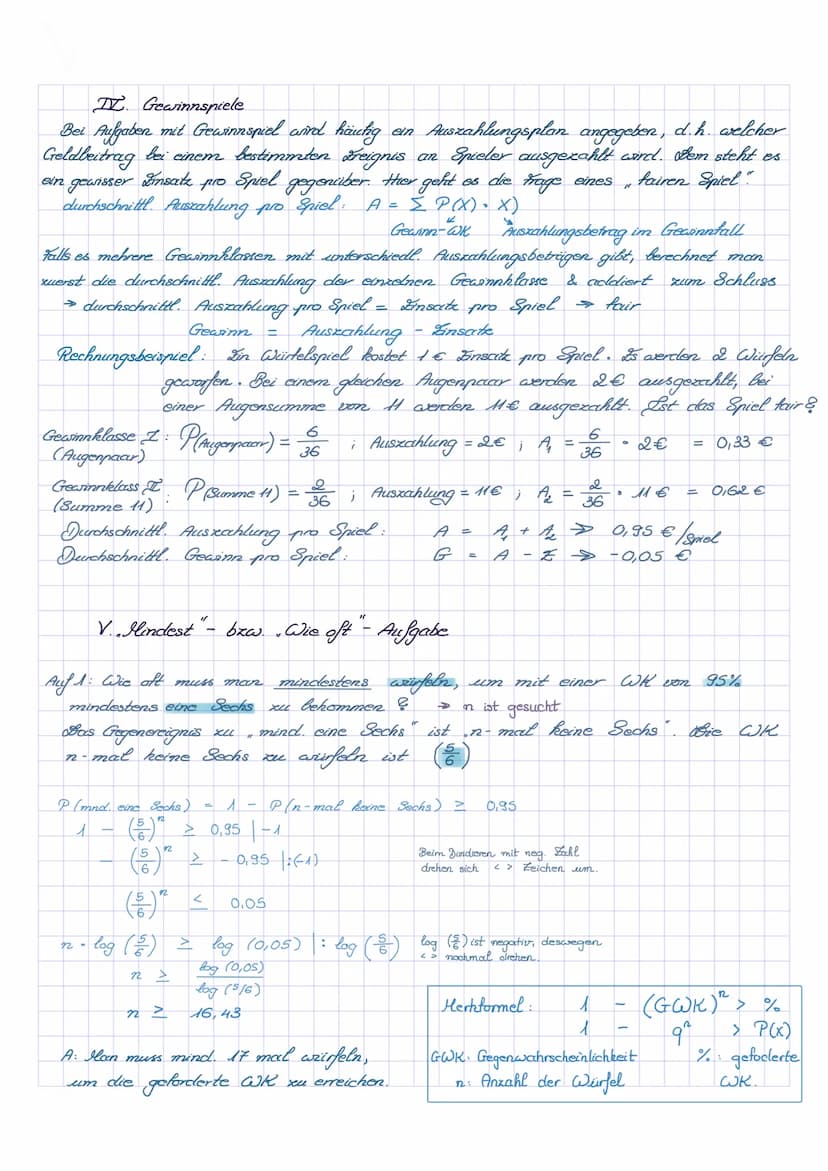 IV. Gewinnspiele
Bei Aufgaben mit Gewinnspiel wird häufig ein Auszahlungsplan angegeben, d.h. welcher
Geldbeitrag bei einem bestimmten Ereignis an Spieler ausgezahlt wird. Dem steht es
ein gewisser Einsatz pro Spiel gegenüber. Hier geht es die Frage eines „fairen Spiel".
durchschnittl. Auszahlung pro Spiel: A = Σ P(X) · X)
Gewinn-WK Auszahlungsbetrag im Gewinnfall
Falls es mehrere Gewinnklassen mit unterschiedl. Auszahlungsbeträgen gibt, berechnet man
zuerst die durchschnittl. Auszahlung der einzelnen Gewinnklasse & addiert zum Schluss
→ durchschnittl. Auszahlung pro Spiel = Einsatz pro Spiel → fair
Gewinn = Auszahlung - Einsatz
Rechnungsbeispiel: Ein Würfelspiel kostet 1€ Einsatz pro Spiel. Es werden 2 Würfeln
geworfen. Bei einem gleichen Augenpaar werden 2€ ausgezahlt, bei
einer Augensumme von 11 werden 11€ ausgezahlt. Ist das Spiel fair?
Gewinnklasse I: P(Augenpaar) = 6/36 ; Auszahlung = 2€ ; A₁ = 6/36 · 2€ = 0,33 €
(Augenpaar)
Gewinnklass II: P(Summe 11) = 2/36 ; Auszahlung = 11€ ; A₂ = 2/36 · 11€ = 0,62 €
(Summe 11)
Durchschnittl. Auszahlung pro Spiel: A = A₁ + A₂ → 0,95 €/Spiel
Durchschnittl. Gewinn pro Spiel: G = A - E → -0,05 €
V. „Mindest"- bzw. „Wie oft"- Aufgabe
Auf 1: Wie oft muss man mindestens würfeln, um mit einer WK von 95%
mindestens eine Sechs zu bekommen? → n ist gesucht
Das Gegenereignis zu „mind. eine Sechs" ist „n-mal keine Sechs". Die WK
n-mal keine Sechs zu würfeln ist (5/6)
P(mnd. eine Sechs) = 1 - P(n-mal keine Sechs) ≥ 0,95
1 - (5/6)ⁿ ≥ 0,95 | -1
- (5/6)ⁿ ≥ -0,95 |:(-1)
Beim Dividieren mit neg. Zahl
drehen sich < > Zeichen um.
(5/6)ⁿ ≤ 0.05
n · log (5/6) ≥ log (0,05) |: log (5/6)
log (5/6) ist negativ, deswegen
< > nochmal drehen.
n ≥ log (0,05) / log (5/6)
n ≥ 16,43
A: Man muss mind. 17 mal würfeln,
um die geforderte WK zu erreichen.
Merkformel: 1 - (GWK)ⁿ > %
1 - qⁿ > P(X)
GWK: Gegenwahrscheinlichkeit %: gefoderte
n: Anzahl der Würfel WK.